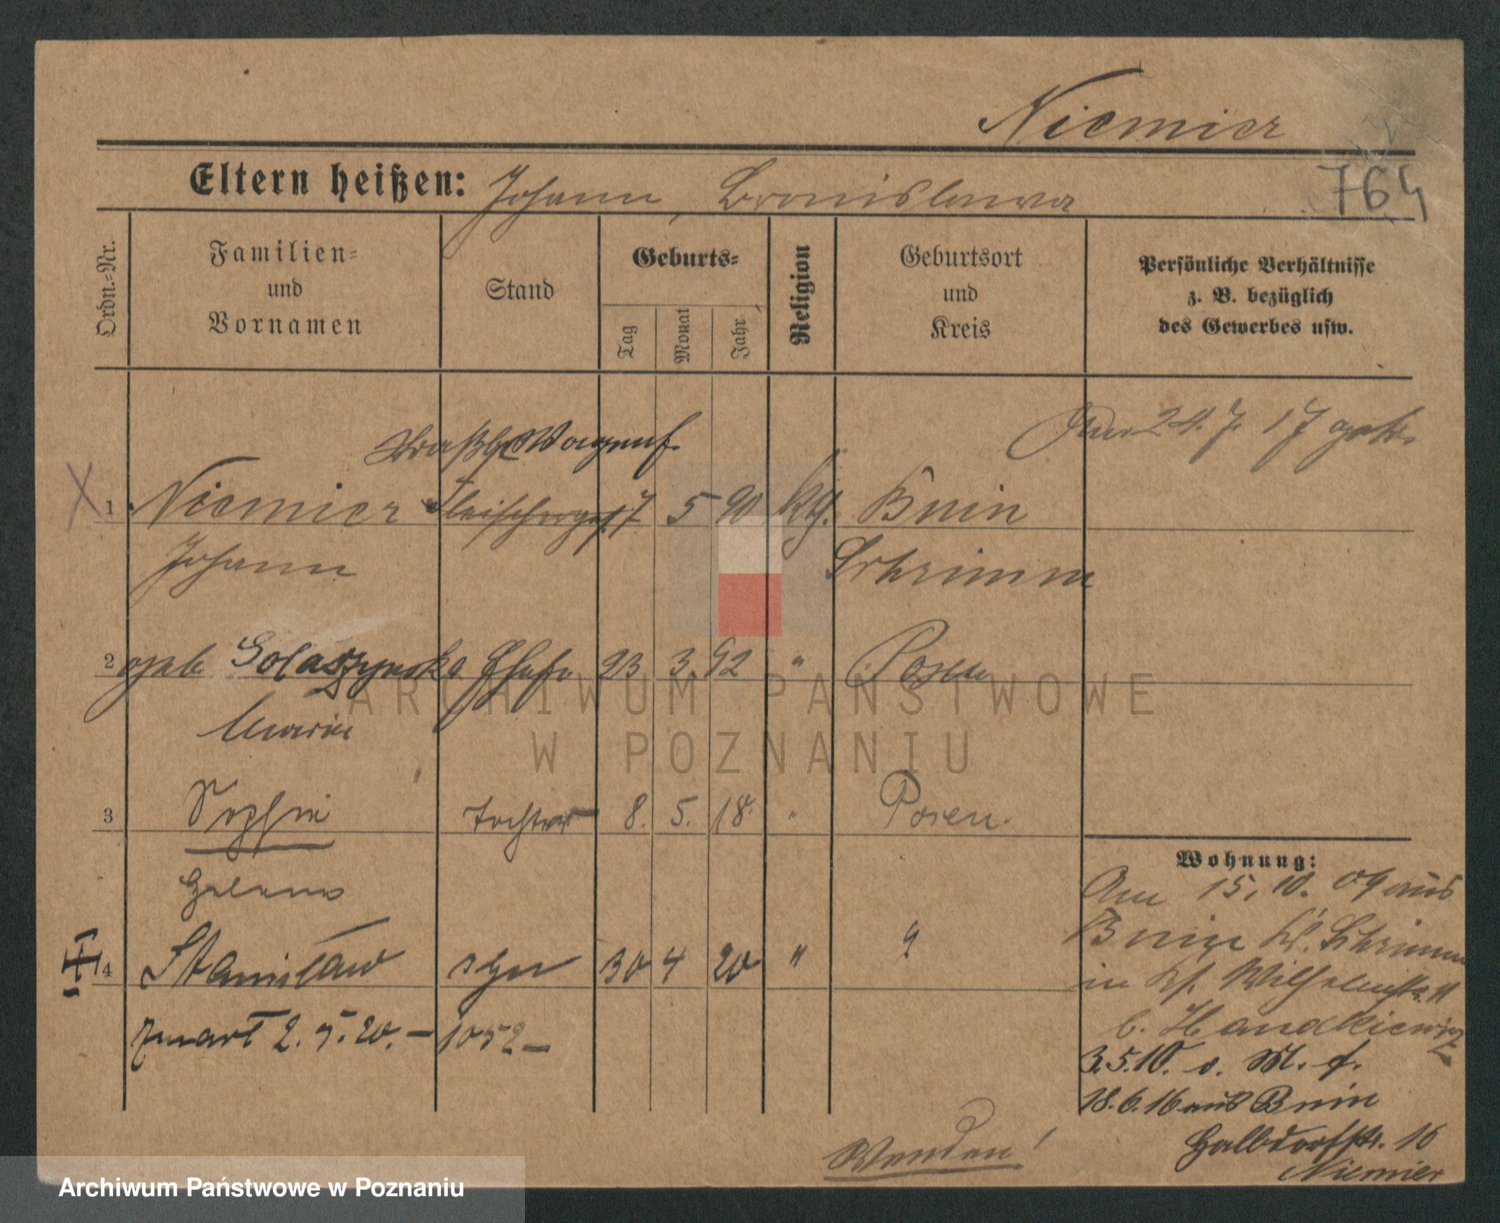 Niemier
764
Eltern heißen: Johann, Bronislawa
Ordn.-Nr.
Familien-
und
Vornamen
Stand
Geburts-
Tag
Monat
Jahr
Religion
Geburtsort
und
Kreis
Persönliche Verhältnisse
z. B. bezüglich
des Gewerbes usw.
24. 7. 17
X
1 Niemier Fleischerges. 17 5 90 kth. Bnin
Johann Schrimm
2 geb. Golaszynska Ehefr. 23 3. 92 " Posen
Maria
3 Sophie Tochter 8. 5. 18. " Posen.
Helena
4 Stanisław Sohn 30 4 20 "
zmarł 2. 5. 20. – 1052 –
Wohnung:
Am 15. 10. 09 aus
Bnin Kr. Schrimm
in Kl. Wilhelmstr. 11
b. Handkiewicz
3.5.10. v. M. f.
18.6.16 aus Bnin
Halbdorfstr. 16
Niemier
Wenden!
ARCHIWUM PAŃSTWOWE
W POZNANIU
Archiwum Państwowe w Poznaniu